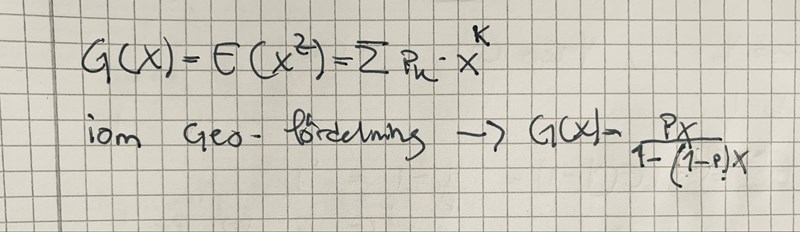 G(x) = E(x²) = Σ Pₖ · x^K
iom Geo-fördelning → G(x) = px / 1-(1-p)x